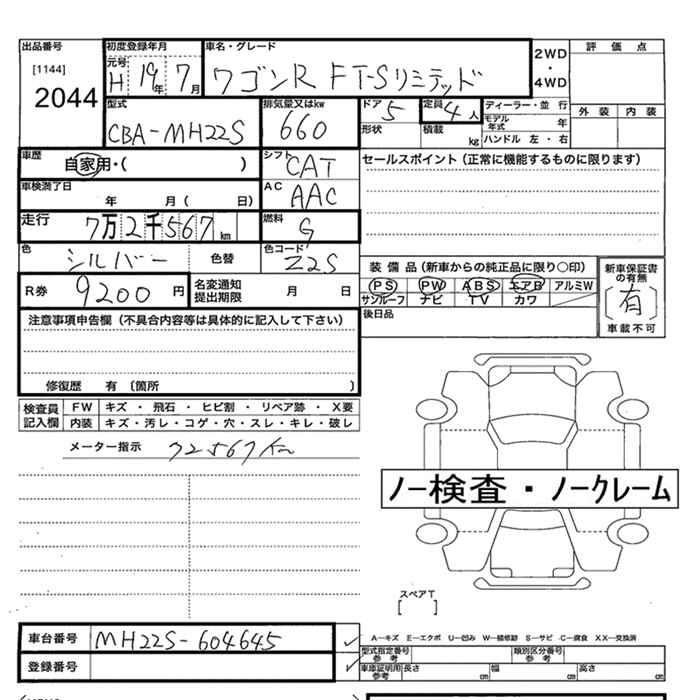 出品番号 初度登録年月 車名・グレード 2WD・4WD 評価点
[1144] 元号 H 19年 7月 ワゴンR FT-Sリミテッド
2044 型式 排気量又はkw ドア 5 定員 4人 ディーラー・並行 外装 内装
CBA-MH22S 660 形状 積載 kg モデル年式 年
ハンドル 左・右
車歴 自家用・( ) シフト CAT セールスポイント(正常に機能するものに限ります)
車検満了日 年 月( 日) AC AAC
走行 7万2千567km 燃料 G
色 シルバー 色替 色コード Z2S
装備品(新車からの純正品に限り○印) 新車保証書の有無
R券 9200円 名変通知提出期限 月 日 PS PW ABS エアB アルミW (有)
サンルーフ ナビ TV カワ 車載不可
注意事項申告欄(不具合内容等は具体的に記入して下さい) 後日品
修復歴 有 〔箇所 〕
検査員記入欄 FW キズ・飛石・ヒビ割・リペア跡・X要
内装 キズ・汚レ・コゲ・穴・スレ・キレ・破レ
メーター指示 72567Km
ノー検査・ノークレーム
スペアT
[ ]
車台番号 MH22S-604645 A―キズ E―エクボ U―凹み W―補修跡 S―サビ C―腐食 XX―交換済
型式指定番号 参考 類別区分番号 参考
登録番号 車庫証明用参考 長さ cm 幅 cm 高さ cm